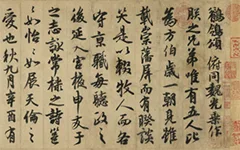 鶺鴒頌 俯同魏光乘作
朕之兄弟唯有五人比
為方伯歲一朝見雖
載崇藩屏而有睽談
笑是以輟牧人而各
守京職每聽政之
後延入宮掖申友于
之志詠棠棣之詩邕
邕如怡怡如展天倫之
愛也秋九月辛酉有